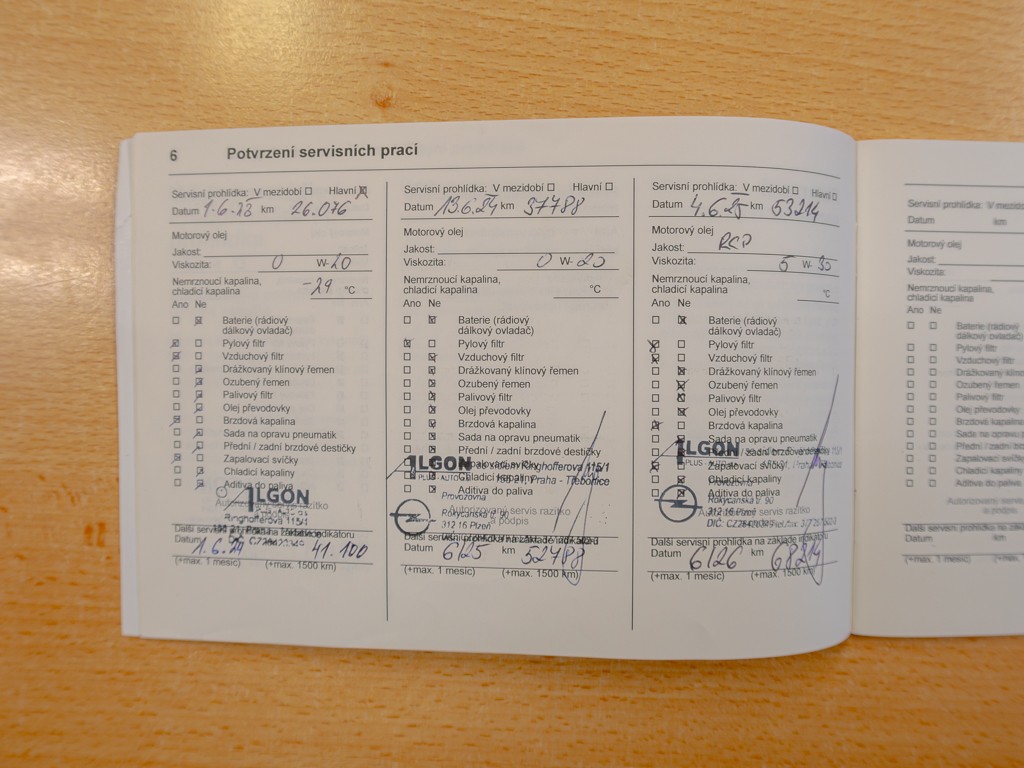 6 Potvrzení servisních prací
Servisní prohlídka: V mezidobí ☐ Hlavní ☒
Datum 1.6.23 km 26.076
Motorový olej
Jakost:
Viskozita: 0 W-20
Nemrznoucí kapalina,
chladicí kapalina -29 °C
Ano Ne
☐ ☒ Baterie (rádiový
dálkový ovladač)
☒ ☐ Pylový filtr
☒ ☐ Vzduchový filtr
☐ ☒ Drážkovaný klínový řemen
☐ ☒ Ozubený řemen
☐ ☒ Palivový filtr
☐ ☒ Olej převodovky
☒ ☐ Brzdová kapalina
☐ ☒ Sada na opravu pneumatik
☐ ☒ Přední / zadní brzdové destičky
☒ ☐ Zapalovací svíčky
☐ ☒ Chladicí kapaliny
☒ ☐ Aditiva do paliva
1LGON
Ringhofferova 115/1
Datum 1.6.24 41.100
(+max. 1 měsíc) (+max. 1500 km)
Servisní prohlídka: V mezidobí ☐ Hlavní ☐
Datum 13.6.24 km 37788
Motorový olej
Jakost:
Viskozita: 0 W-20
Nemrznoucí kapalina,
chladicí kapalina °C
Ano Ne
☐ ☒ Baterie (rádiový
dálkový ovladač)
☒ ☐ Pylový filtr
☐ ☒ Vzduchový filtr
☐ ☒ Drážkovaný klínový řemen
☐ ☒ Ozubený řemen
☐ ☒ Palivový filtr
☐ ☒ Olej převodovky
☐ ☒ Brzdová kapalina
☐ ☒ Sada na opravu pneumatik
☐ ☒ Přední / zadní brzdové destičky
☐ ☒ Zapalovací svíčky
1LGON Ringhofferova 115/1
☐ ☒ Chladicí kapaliny
Praha - Třebonice
☐ ☒ Aditiva do paliva
Provozovna
Autorizovaný servis razítko
Rokycanská tř. 90
a podpis
312 16 Plzeň
Další servisní prohlídka na základě indikátoru
Datum 6/25 km 52788
(+max. 1 měsíc) (+max. 1500 km)
Servisní prohlídka: V mezidobí ☐ Hlavní ☐
Datum 4.6.25 km 53214
Motorový olej
Jakost:
Viskozita: 5 W-30
Nemrznoucí kapalina,
chladicí kapalina °C
Ano Ne
☐ ☒ Baterie (rádiový
dálkový ovladač)
☒ ☐ Pylový filtr
☒ ☐ Vzduchový filtr
☐ ☒ Drážkovaný klínový řemen
☐ ☒ Ozubený řemen
☐ ☒ Palivový filtr
☐ ☒ Olej převodovky
☒ ☐ Brzdová kapalina
☐ ☒ Sada na opravu pneumatik
1LGON
☒ ☐ Zapalovací svíčky
☐ ☒ Chladicí kapaliny
Provozovna
☐ ☒ Aditiva do paliva
Rokycanská tř. 90
Autorizovaný servis razítko
312 16 Plzeň
Další servisní prohlídka na základě indikátoru
Datum 6/26 km 68214
(+max. 1 měsíc) (+max. 1500 km)
Servisní prohlídka: V mezidobí
Datum km
Motorový olej
Jakost:
Viskozita:
Nemrznoucí kapalina,
chladicí kapalina
Ano Ne
☐ ☐ Baterie (rádiový
dálkový ovladač)
☐ ☐ Pylový filtr
☐ ☐ Vzduchový filtr
☐ ☐ Drážkovaný klínový
☐ ☐ Ozubený řemen
☐ ☐ Palivový filtr
☐ ☐ Olej převodovky
☐ ☐ Brzdová kapalina
☐ ☐ Sada na opravu pneumatik
☐ ☐ Přední / zadní brzdové
☐ ☐ Zapalovací svíčky
☐ ☐ Chladicí kapaliny
☐ ☐ Aditiva do paliva
Autorizovaný servis
a podpis
Další servisní prohlídka na základě
Datum km
(+max. 1 měsíc)